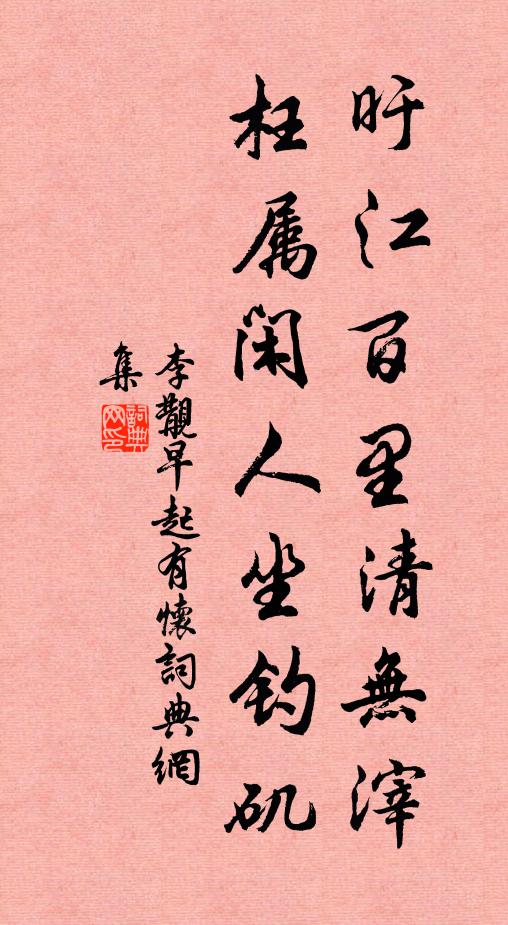 旴江百里清無滓
枉属闲人坐钓矶
李覯早起有懷詞典網
集
詞典
网印